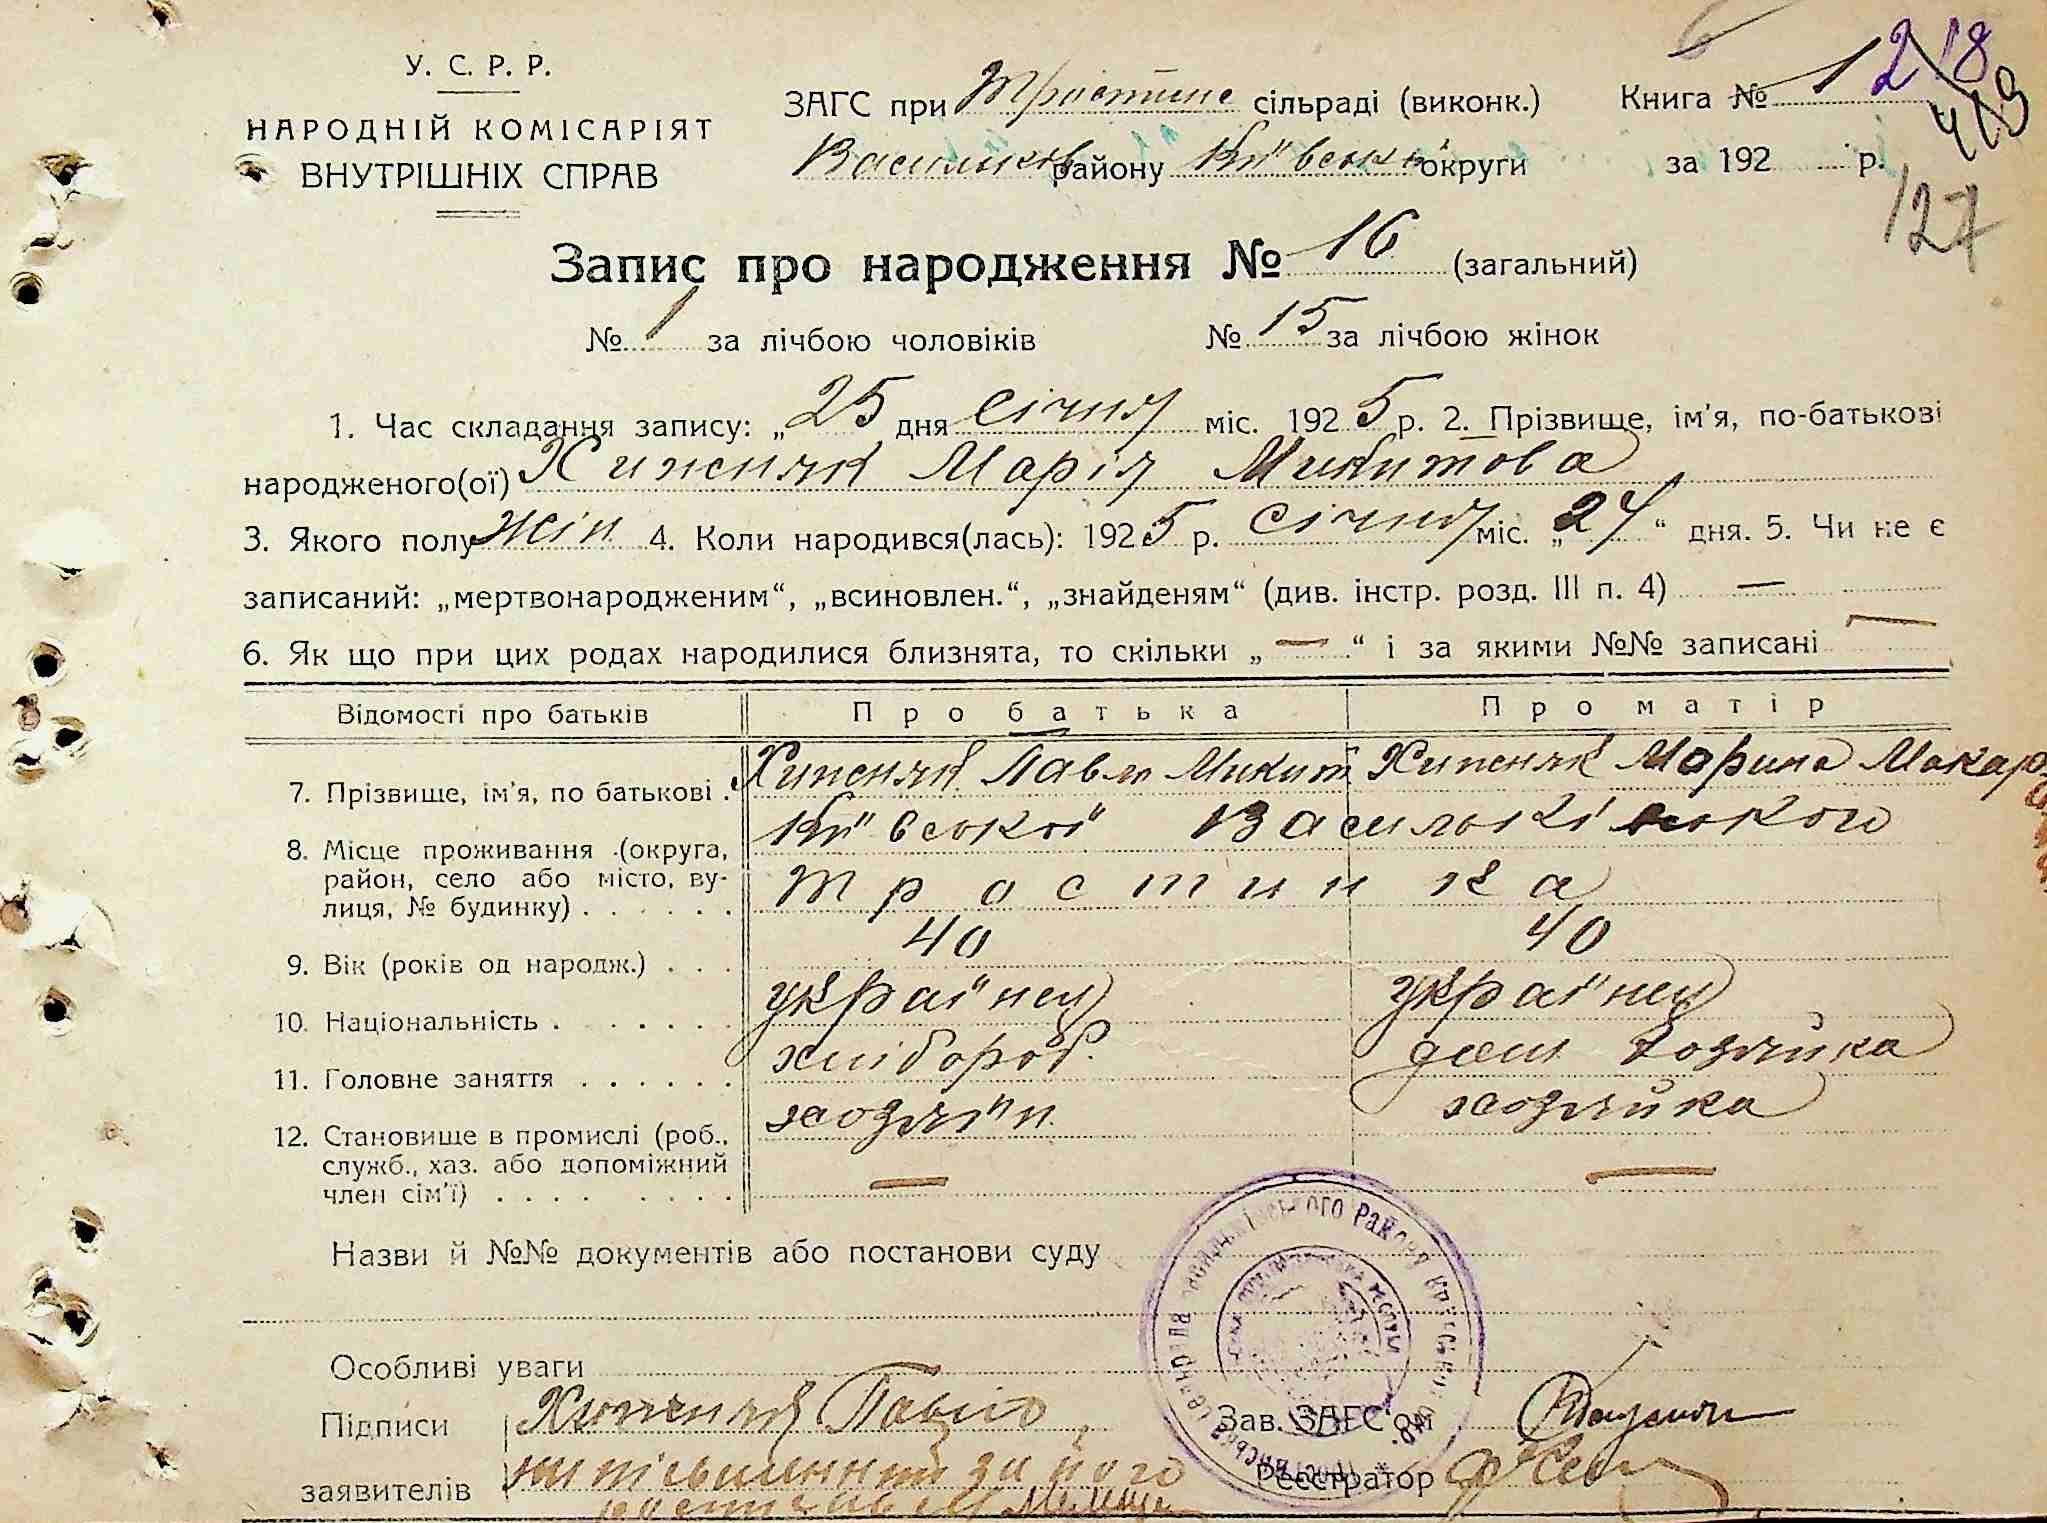 У. С. Р. Р.
НАРОДНІЙ КОМІСАРІЯТ
ВНУТРІШНІХ СПРАВ
ЗАГС при Тростинс сільраді (виконк.)
Васильков району Київсько округи
Книга № 1
за 192 р.
218
419
127
Запис про народження № 16 (загальний)
№ 1 за лічбою чоловіків № 15 за лічбою жінок
1. Час складання запису: „ 25 дня Січня міс. 1925 р. 2. Прізвище, ім'я, по-батькові
народженого(ої) Хипеняк Марія Микитова
3. Якого полу жін 4. Коли народився(лась): 1925 р. Січня міс. „24“ дня. 5. Чи не є
записаний: „мертвонародженим“, „всиновлен.“, „знайденям“ (див. інстр. розд. III п. 4) —
6. Як що при цих родах народилися близнята, то скільки „—“ і за якими №№ записані —
Відомості про батьків Про батька Про матір
7. Прізвище, ім'я, по батькові . Хипеняк Павло Микит Хипеняк Марина Макар
8. Місце проживання (округа, район, село або місто, вулиця, № будинку) . . . . . .
Київської Васильківського
Тростинка
9. Вік (років од народж.) . . . 40 40
10. Національність . . . . . . . українец українец
11. Головне заняття . . . . . . хлібороб. дом хозяйка
12. Становище в промислі (роб., служб., хаз. або допоміжний член сім'ї) . . . . . . . . хозяїн. хозяйка
— —
Назви й №№ документів або постанови суду
Особливі уваги
Підписи Хипеняк Павло
заявителів
за його
Зав. ЗАГС'ом
Реєстратор